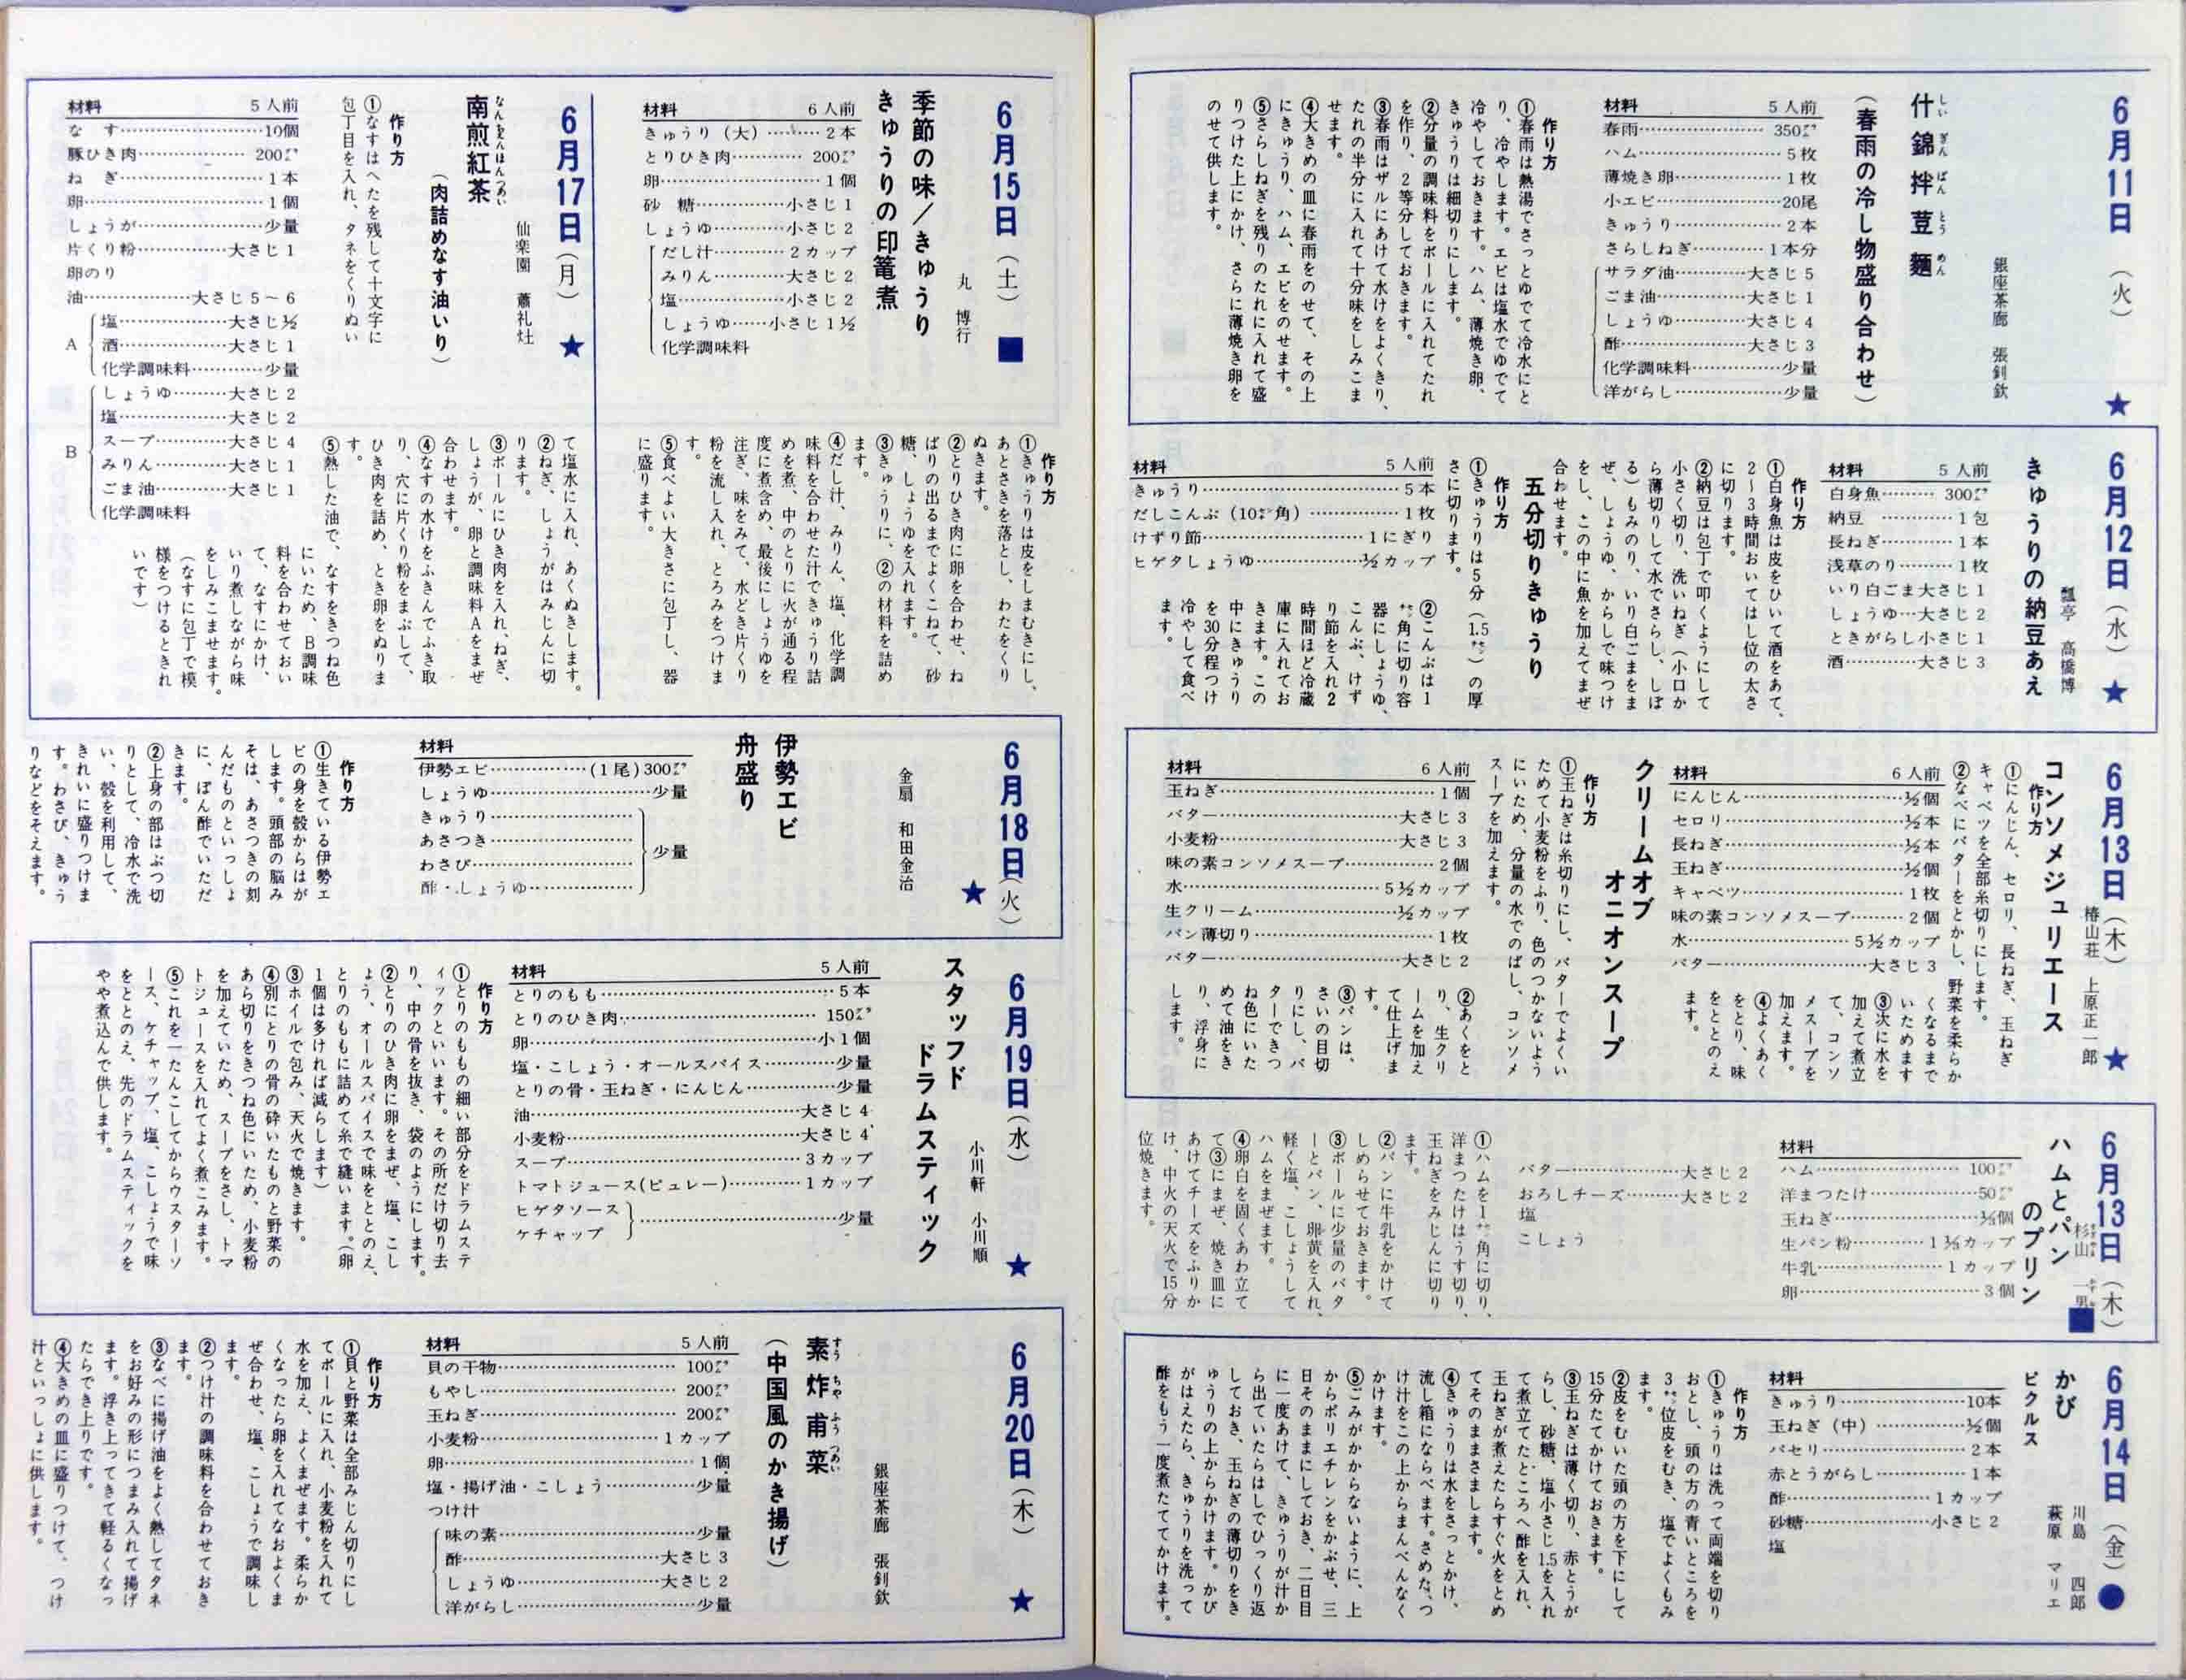 6月11日(火)★
銀座茶廊 張釗欽
什錦拌荳麺
しいぎんばんとうめん
(春雨の冷し物盛り合わせ)
材料 5人前
春雨 350㌘
ハム 5枚
薄焼き卵 1枚
小エビ 20尾
きゅうり 2本
さらしねぎ 1本分
サラダ油 大さじ5
ごま油 大さじ1
しょうゆ 大さじ4
酢 大さじ3
化学調味料 少量
洋がらし 少量
作り方
①春雨は熱湯でさっとゆでて冷水にと
り、冷やします。エビは塩水でゆでて
冷やしておきます。ハム、薄焼き卵、
きゅうりは細切りにします。
②分量の調味料をボールに入れてたれ
を作り、2等分しておきます。
③春雨はザルにあけて水けをよくきり、
たれの半分に入れて十分味をしみこま
せます。
④大きめの皿に春雨をのせて、その上
にきゅうり、ハム、エビをのせます。
⑤さらしねぎを残りのたれに入れて盛
りつけた上にかけ、さらに薄焼き卵を
のせて供します。
6月12日(水)★
瓢亭 高橋博
きゅうりの納豆あえ
材料 5人前
白身魚 300㌘
納豆 1包
長ねぎ 1本
浅草のり 1枚
いり白ごま 大さじ1
しょうゆ 大さじ2
ときがらし 小さじ1
酒 大さじ3
作り方
①白身魚は皮をひいて酒をあて、
2~3時間おいてはし位の太さ
に切ります。
②納豆は包丁で叩くようにして
小さく切り、洗いねぎ(小口か
ら薄切りして水でさらし、しぼ
る)もみのり、いり白ごまをま
ぜ、しょうゆ、からしで味つけ
をし、この中に魚を加えてまぜ
合わせます。
五分切りきゅうり
材料 5人前
きゅうり 5本
だしこんぶ(10㌢角) 1枚
けずり節 1にぎり
ヒゲタしょうゆ ½カップ
作り方
①きゅうりは5分(1.5㌢)の厚
さに切ります。
②こんぶは1
㌢角に切り容
器にしょうゆ、
こんぶ、けず
り節を入れ2
時間ほど冷蔵
庫に入れてお
きます。この
中にきゅうり
を30分程つけ
冷やして食べ
ます。
6月13日(木)★
椿山荘 上原正一郎
コンソメジュリエース
作り方
①にんじん、セロリ、長ねぎ、玉ねぎ
キャベツを全部糸切りにします。
②なべにバターをとかし、野菜を柔らか
くなるまで
いためます
③次に水を
加えて煮立
て、コンソ
メスープを
加えます。
④よくあく
をとり、味
をととのえ
ます。
材料 6人前
にんじん ½個
セロリ ½本
長ねぎ ½本
玉ねぎ ½個
キャベツ 1枚
味の素コンソメスープ 2個
水 5½カップ
バター 大さじ3
クリームオブ
オニオンスープ
作り方
①玉ねぎは糸切りにし、バターでよくい
ためて小麦粉をふり、色のつかないよう
にいため、分量の水でのばし、コンソメ
スープを加えます。
②あくをと
り、生クリ
ームを加え
て仕上げま
す。
③パンは、
さいの目切
りにし、バ
ターできつ
ね色にいた
めて油をき
り、浮身に
します。
材料 6人前
玉ねぎ 1個
バター 大さじ3
小麦粉 大さじ3
味の素コンソメスープ 2個
水 5½カップ
生クリーム ½カップ
パン薄切り 1枚
バター 大さじ2
6月13日(木)■
杉山一男
ハムとパン
のプリン
材料
ハム 100㌘
洋まつたけ 50㌘
玉ねぎ 個
生パン粉 カップ
牛乳 1カップ
卵 3個
バター 大さじ2
おろしチーズ 大さじ2
塩
こしょう
①ハムを1㌢角に切り、
洋まつたけはうす切り、
玉ねぎをみじんに切り
ます。
②パンに牛乳をかけて
しめらせておきます。
③ボールに少量のバタ
ーとパン、卵黄を入れ、
軽く塩、こしょうして
ハムをまぜます。
④卵白を固くあわ立て
て③にまぜ、焼き皿に
あけてチーズをふりか
け、中火の天火で15分
位焼きます。
6月14日(金)●
川島 四郎
萩原 マリエ
かび
ピクルス
材料
きゅうり 10本
玉ねぎ(中) ½個
パセリ 2本
赤とうがらし 1本
酢 1カップ
砂糖 小さじ2
塩
作り方
①きゅうりは洗って両端を切り
おとし、頭の方の青いところを
3㌢位皮をむき、塩でよくもみ
ます。
②皮をむいた頭の方を下にして
15分たてかけておきます。
③玉ねぎは薄く切り、赤とうが
らし、砂糖、塩小さじ1.5を入れ
て煮立てたところへ酢を入れ、
玉ねぎが煮えたらすぐ火をとめ
てそのままさまします。
④きゅうりは水をさっとかけ、
流し箱にならべます。さめた、つ
け汁をこの上からまんべんなく
かけます。
⑤ごみがかからないように、上
からポリエチレンをかぶせ、三
日そのままにしておき、二日目
に一度あけて、きゅうりが汁か
ら出ていたらはしでひっくり返
しておき、玉ねぎの薄切りをき
ゅうりの上からかけます。かび
がはえたら、きゅうりを洗って
酢をもう一度煮たててかけます。
6月15日(土)■
丸 博行
季節の味/きゅうり
きゅうりの印篭煮
材料 6人前
きゅうり(大) 2本
とりひき肉 200㌘
卵 1個
砂糖 小さじ1
しょうゆ 小さじ2
だし汁 2カップ
みりん 大さじ2
塩 小さじ2
しょうゆ 小さじ1½
化学調味料
作り方
①きゅうりは皮をしまむきにし、
あとさきを落とし、わたをくり
ぬきます。
②とりひき肉に卵を合わせ、ね
ばりの出るまでよくこねて、砂
糖、しょうゆを入れます。
③きゅうりに、②の材料を詰め
ます。
④だし汁、みりん、塩、化学調
味料を合わせた汁できゅうり詰
めを煮、中のとりに火が通る程
度に煮含め、最後にしょうゆを
注ぎ、味をみて、水どき片くり
粉を流し入れ、とろみをつけま
す。
⑤食べよい大きさに包丁し、器
に盛ります。
6月17日(月)★
仙楽園 蕭礼灶
南煎紅茶
(肉詰めなす油いり)
作り方
①なすはへたを残して十文字に
包丁目を入れ、タネをくりぬい
て塩水に入れ、あくぬきします。
②ねぎ、しょうがはみじんに切
ります。
③ボールにひき肉を入れ、ねぎ、
しょうが、卵と調味料Aをまぜ
合わせます。
④なすの水けをふきんでふき取
り、穴に片くり粉をまぶして、
ひき肉を詰め、とき卵をぬりま
す。
⑤熱した油で、なすをきつね色
にいため、B調味
料を合わせておい
て、なすにかけ、
いり煮しながら味
をしみこませます。
(なすに包丁で模
様をつけるときれ
いです)
材料 5人前
なす 10個
豚ひき肉 200㌘
ねぎ 1本
卵 1個
しょうが 少量
片くり粉 大さじ1
卵のり
油 大さじ5~6
A
塩 大さじ½
酒 大さじ1
化学調味料 少量
B
しょうゆ 大さじ2
塩 大さじ2
スープ 大さじ4
みりん 大さじ1
ごま油 大さじ1
化学調味料
6月18日(火)★
金扇 和田金治
伊勢エビ
舟盛り
材料
伊勢エビ (1尾)300㌘
しょうゆ 少量
きゅうり
あさつき
わさび
酢・しょうゆ
少量
作り方
①生きている伊勢エ
ビの身を殻からはが
します。頭部の脳み
そは、あさつきの刻
んだものといっしょ
に、ぽん酢でいただ
きます。
②上身の部はぶつ切
りとして、冷水で洗
い、殻を利用して、
きれいに盛りつけま
す。わさび、きゅう
りなどをそえます。
6月19日(水)★
小川軒 小川順
スタッフド
ドラムスティック
材料 5人前
とりのもも 5本
とりのひき肉 150㌘
卵 小1個
塩・こしょう・オールスパイス 少量
とりの骨・玉ねぎ・にんじん 少量
油 大さじ4
小麦粉 大さじ4
スープ 3カップ
トマトジュース(ピュレー) 1カップ
ヒゲタソース
ケチャップ
少量
作り方
①とりのももの細い部分をドラムステ
ィックといいます。その所だけ切り去
り、中の骨を抜き、袋のようにします。
②とりのひき肉に卵をまぜ、塩、こし
ょう、オールスパイスで味をととのえ、
とりのももに詰めて糸で縫います。(卵
1個は多ければ減らします)
③ホイルで包み、天火で焼きます。
④別にとりの骨の砕いたものと野菜の
あら切りをきつね色にいため、小麦粉
を加えていため、スープをさし、トマ
トジュースを入れてよく煮こみます。
⑤これを一たんこしてからウスターソ
ース、ケチャップ、塩、こしょうで味
をととのえ、先のドラムスティックを
やや煮込んで供します。
6月20日(木)★
銀座茶廊 張釗欽
素炸甫菜
すうちやふうつあい
(中国風のかき揚げ)
材料 5人前
貝の干物 100㌘
もやし 200㌘
玉ねぎ 200㌘
小麦粉 1カップ
卵 1個
塩・揚げ油・こしょう 少量
つけ汁
味の素 少量
酢 大さじ3
しょうゆ 大さじ2
洋がらし 少量
作り方
①貝と野菜は全部みじん切りにし
てボールに入れ、小麦粉を入れて
水を加え、よくまぜます。柔らか
くなったら卵を入れてなおよくま
ぜ合わせ、塩、こしょうで調味し
ます。
②つけ汁の調味料を合わせておき
ます。
③なべに揚げ油をよく熱してタネ
をお好みの形につまみ入れて揚げ
ます。浮き上ってきて軽るくなっ
たらでき上りです。
④大きめの皿に盛りつけて、つけ
汁といっしょに供します。